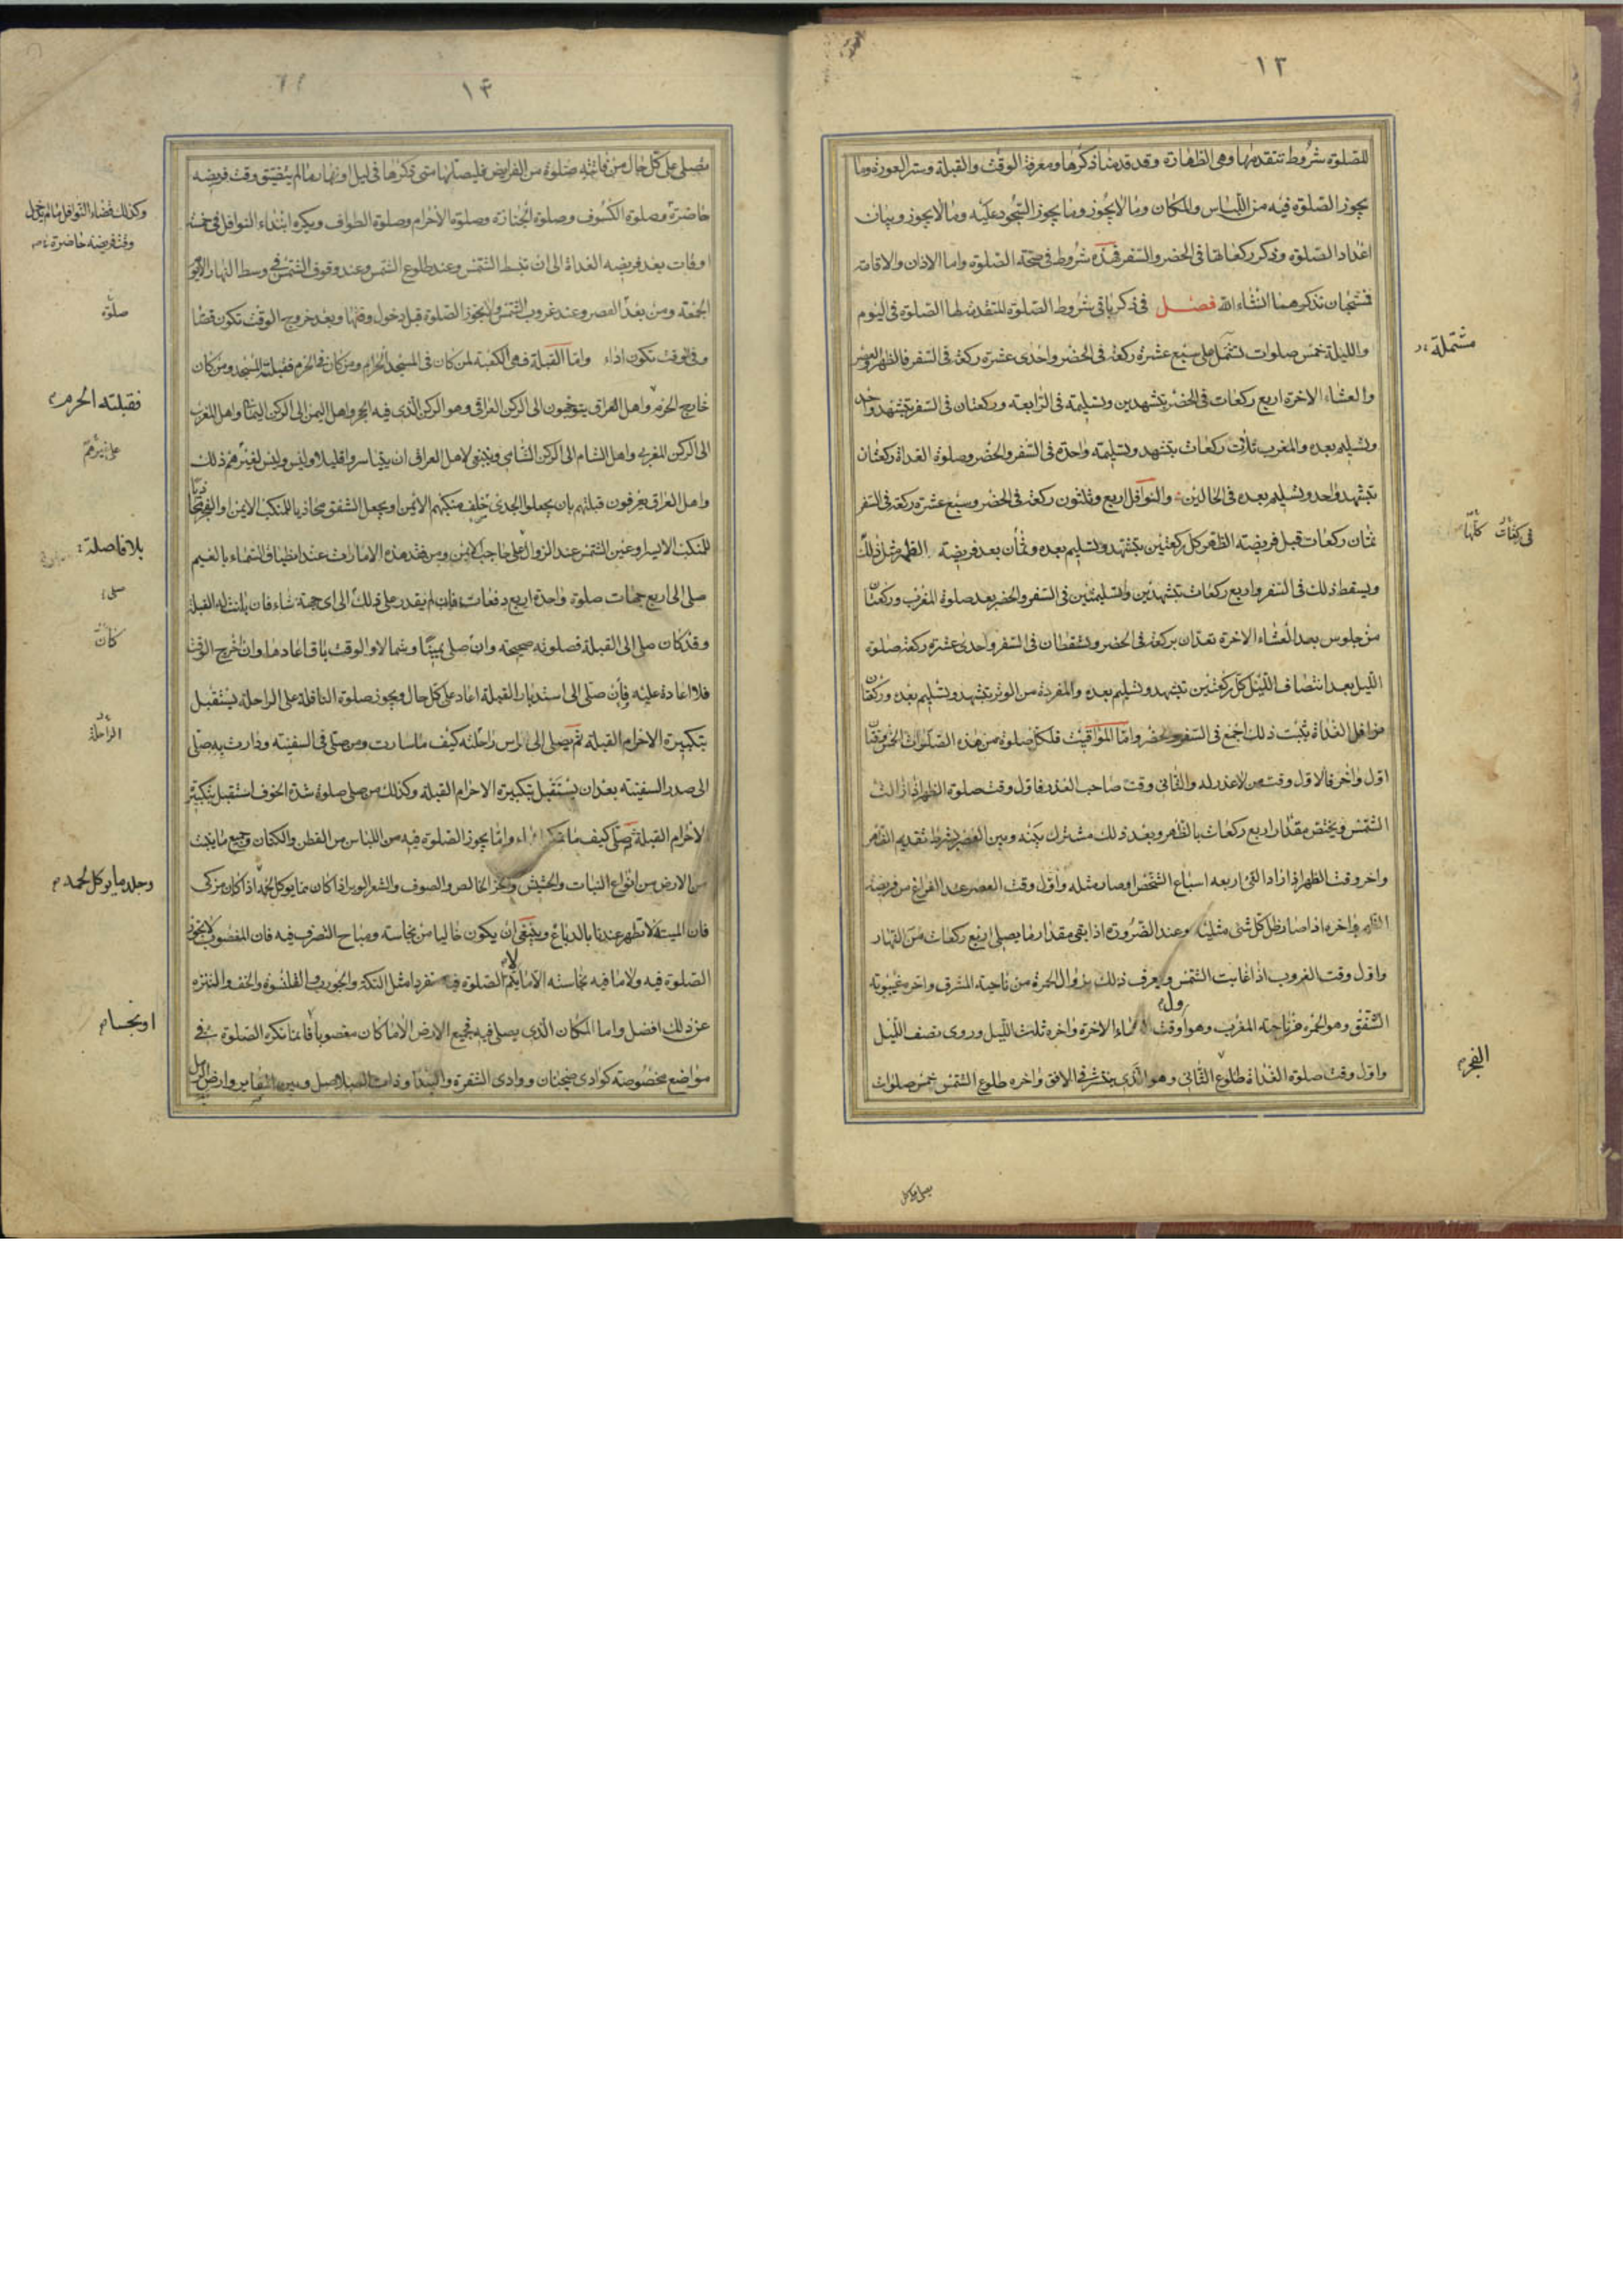 ١٣
للصلوة شروط تتقدمها وهى الطهارة وقد قدمنا ذكرها ومعرفة الوقت والقبلة وستر العورة وما
يجوز الصلوة فيه من اللباس والمكان وما لا يجوز وما يجوز السجود عليه وما لا يجوز وبيان
اعداد الصلوة وذكر ركعاتها فى الحضر والسفر فهذه شروط فى صحة الصلوة واما الاذان والاقامة
نذكرهما انشاء الله فصل فى ذكر باقى شروط الصلوة المتقدمة لها الصلوة فى اليوم
والليلة خمس صلوات تشتمل على سبع عشرة ركعة فى الحضر واحدى عشرة ركعة فى السفر فالظهر والعصر
مشتملة
والعشاء الاخرة اربع ركعات فى الحضر بتشهدين وتسليمة فى الرابعة وركعتان فى السفر بتشهد واحد
وتسليم بعده والمغرب ثلاث ركعات بتشهد وتسليمة واحدة فى السفر والحضر وصلوة الغداة ركعتان
بتشهد واحد وتسليم بعده فى الحالين والنوافل اربع وثلثون ركعة فى الحضر وسبع عشرة ركعة فى السفر
ثمان ركعات قبل فريضة الظهر كل ركعتين بتشهد وتسليم بعده وثمان بعد فريضة الظهر مثل ذلك
كلها
ويسقط ذلك فى السفر واربع ركعات بتشهدين وتسليمتين فى السفر والحضر بعد صلوة المغرب وركعتان
من جلوس بعد العشاء الاخرة تعدان بركعة فى الحضر وتسقطان فى السفر واحدى عشرة ركعة صلوة
الليل بعد انتصاف الليل كل ركعتين بتشهد وتسليم بعده والمفردة من الوتر بتشهد وتسليم بعده وركعتان
نوافل الغداة يثبت ذلك اجمع فى السفر والحضر واما المواقيت فلكل صلوة من هذه الصلوات الخمس وقتان
اول واخر فالاول وقت من لا عذر له والثانى وقت صاحب العذر فاول وقت صلوة الظهر اذا زالت
الشمس ويختص مقدار اربع ركعات بالظهر وبعد ذلك مشترك بينه وبين العصر بشرط تقديم الظهر
واخر وقت الظهر اذا زاد الفئ اربعه اسباع الشخص او صار مثله واول وقت العصر عند الفراغ من فريضة
الظهر واخره اذا صار ظل كل شئ مثليه وعند الضرورة اذا بقى مقدار ما يصلى اربع ركعات من النهار
واول وقت الغروب اذا غابت الشمس ويعرف ذلك بزوال الحمرة من ناحية المشرق واخره غيبوبة
الشفق وهو الحمرة من ناحية المغرب وهو اول وقت العشاء الاخرة واخره ثلث الليل وروى نصف الليل
واول وقت صلوة الغداة طلوع الثانى وهو الذى ينتشر فى الافق واخره طلوع الشمس خمس صلوات
الفجر
١٤
تصلى على كل حال من فاتته صلوة من الفرايض فليصلها متى ذكرها فى ليل او نهار ما لم يتضيق وقت فريضة
حاضرة وصلوة الكسوف وصلوة الجنازة وصلوة الاحرام وصلوة الطواف ويكره ابتداء النوافل فى خمسة
وكذلك قضاء النوافل ما لم يدخل
وقت فريضة حاضرة
اوقات بعد فريضة الغداة الى ان تنبسط الشمس وعند طلوع الشمس وعند وقوف الشمس فى وسط النهار الا يوم
الجمعة ومن بعد العصر وعند غروب الشمس ولا يجوز الصلوة قبل دخول وقتها وبعد خروج الوقت تكون قضا
صلوة
وفى الوقت تكون اداء واما القبلة فهى الكعبة لمن كان فى المسجد الحرام ومن كان فى الحرم فقبلته المسجد ومن كان
خارج الحرم واهل العراق يتوجهون الى الركن العراقى وهو الركن الذى فيه الحجر واهل اليمن الى الركن اليمانى واهل المغرب
فقبلته الحرم
الى الركن المغربى واهل الشام الى الركن الشامى وينبغى لاهل العراق ان يتياسروا قليلا وليس لغيرهم ذلك
على غيرهم
واهل العراق يعرفون قبلتهم بان يجعلوا الجدى خلف منكبهم الايمن او يجعل الشفق محاذيا للمنكب الايمن او الفجر محاذيا
للمنكب الايسر او عين الشمس عند الزوال على حاجبه الايمن ومن فقد هذه الامارات عند انطباق السماء بالغيم
بلا فاصلة
صلى الى اربع جهات صلوة واحدة اربع دفعات فان لم يقدر على ذلك الى اى جهة شاء فان بانت له القبلة
صلى
وقد كان صلى الى القبلة فصلوته صحيحة وان صلى يمينا وشمالا والوقت باق اعادها وان خرج الوقت
كان
فلا اعادة عليه وان صلى الى استدبار القبلة اعاد على كل حال ويجوز صلوة النافلة على الراحلة يستقبل
بتكبيرة الاحرام القبلة ثم يصلى الى راس راحلته كيف ما سارت ومن صلى فى السفينة ودارت به صلى
الراحلة
الى صدر السفينة بعد ان يستقبل بتكبيرة الاحرام القبلة وكذلك من صلى صلوة شدة الخوف استقبل بتكبيرة
الاحرام القبلة ثم صلى كيف ما واما يجوز الصلوة فيه من اللباس من القطن والكتان وجميع ما ينبت
من الارض من انواع النبات والحشيش والخز الخالص والصوف والشعر الوبر اذا كان مما يوكل لحمه اذا كان مزكى
وجلد ما يوكل لحمه
فان الميتة لا تطهر عندنا بالدباغ وينبغى ان يكون خاليا من نجاسة ومباح التصرف فيه فان المغصوب لا يجوز
الصلوة فيه ولا ما فيه نجاسة الا ما لا يتم الصلوة فيه منفردا مثل التكة والجورب والقلنسوة والخف والتنزه
عن ذلك افضل واما المكان الذى يصلى فيه فجميع الارض الا ما كان مغصوبا فاما تكره الصلوة فى
او نجسا
مواضع مخصوصة كوادى ضجنان ووادى الشقرة والبيدا وذات الصلاصل وبين المقابر وارض الرمل